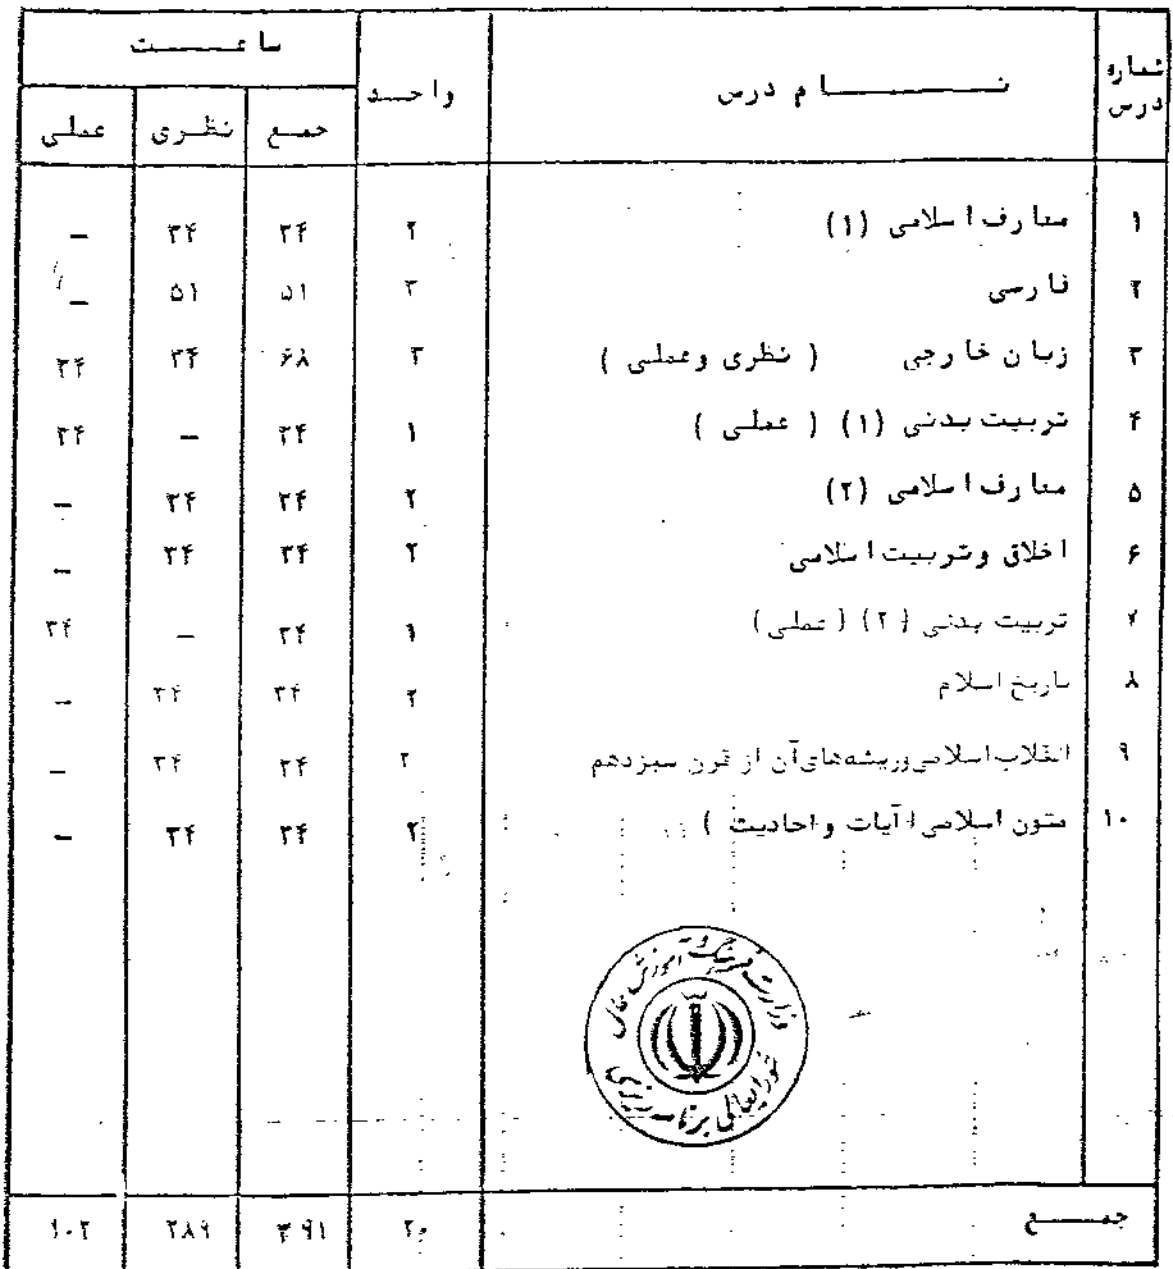 شماره درس | نام درس | واحد | ساعت
جمع | نظری | عملی
۱ | معارف اسلامی (۱) | ۲ | ۳۴ | ۳۴ | –
۲ | فارسی | ۳ | ۵۱ | ۵۱ | –
۳ | زبان خارجی ( نظری وعملی ) | ۳ | ۶۸ | ۳۴ | ۳۴
۴ | تربیت بدنی (۱) ( عملی ) | ۱ | ۳۴ | – | ۳۴
۵ | معارف اسلامی (۲) | ۲ | ۳۴ | ۳۴ | –
۶ | اخلاق وتربیت اسلامی | ۲ | ۳۴ | ۳۴ | –
۷ | تربیت بدنی (۲) (عملی) | ۱ | ۳۴ | – | ۳۴
۸ | تاریخ اسلام | ۲ | ۳۴ | ۳۴ | –
۹ | انقلاب اسلامی وریشه‌های آن از قرن سیزدهم | ۲ | ۳۴ | ۳۴ | –
۱۰ | متون اسلامی (آیات و احادیث ) | ۲ | ۳۴ | ۳۴ | –
وزارت فرهنگ و آموزش عالی
شورایعالی برنامه ریزی
جمع | ۲۰ | ۳۹۱ | ۲۸۹ | ۱۰۲